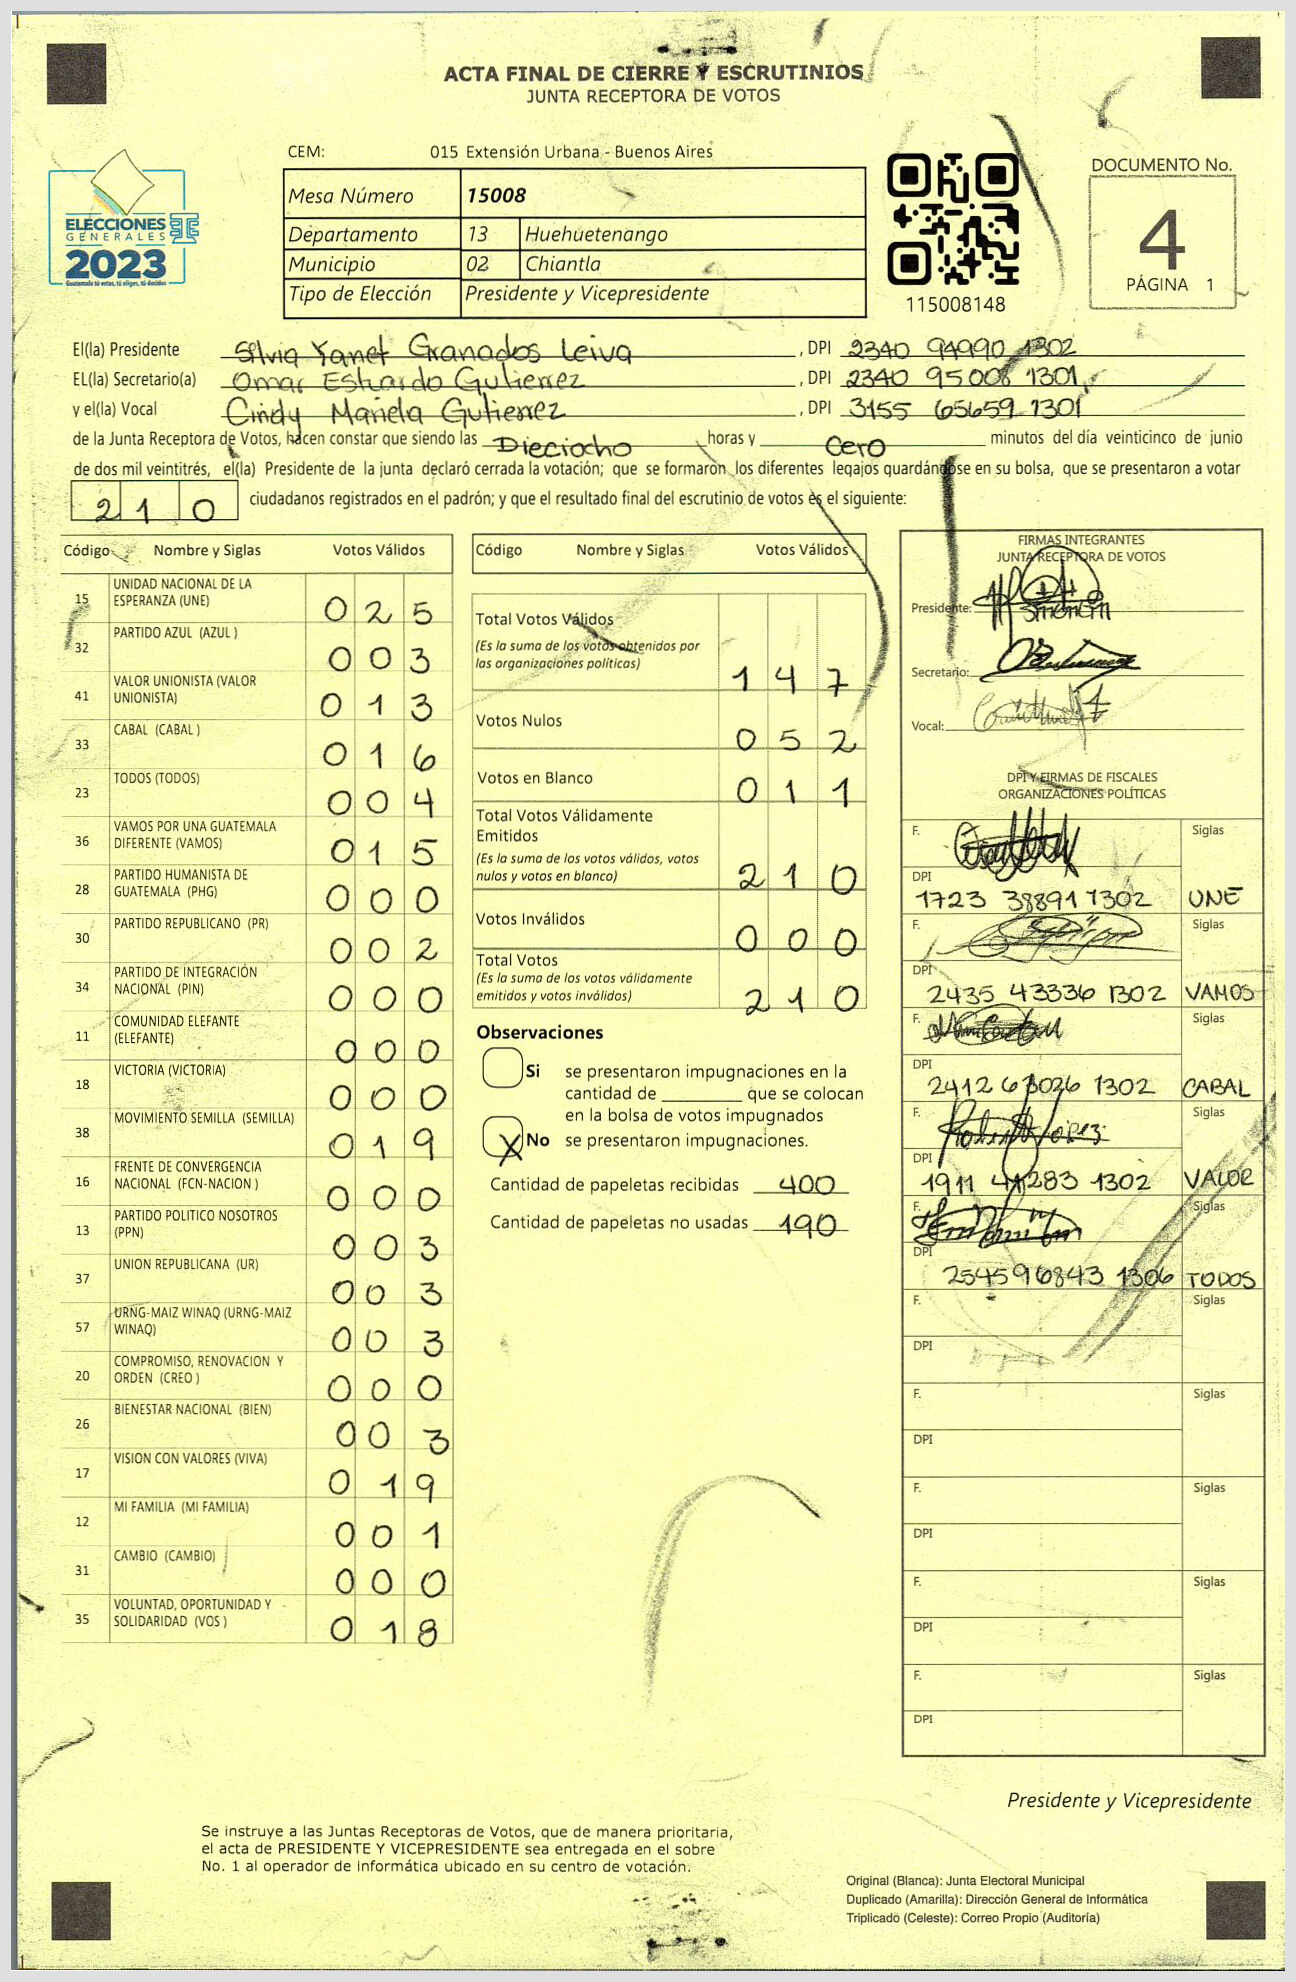 ACTA FINAL DE CIERRE Y ESCRUTINIOS
JUNTA RECEPTORA DE VOTOS
CEM: 015 Extensión Urbana - Buenos Aires
Mesa Número 15008
Departamento 13 Huehuetenango
Municipio 02 Chiantla
Tipo de Elección Presidente y Vicepresidente
ELECCIONES
GENERALES
2023
Guatemala tú votas, tú eliges, tú decides
115008148
DOCUMENTO No.
4
PÁGINA 1
El(la) Presidente Silvia Yanet Granados Leiva , DPI 2340 94990 1302
EL(la) Secretario(a) Omar Estuardo Gutierrez , DPI 2340 95008 1301
y el(la) Vocal Cindy Mariela Gutierrez , DPI 3155 65659 1301
de la Junta Receptora de Votos, hacen constar que siendo las Dieciocho horas y Cero minutos del día veinticinco de junio
de dos mil veintitrés, el(la) Presidente de la junta declaró cerrada la votación; que se formaron los diferentes legajos guardándose en su bolsa, que se presentaron a votar
210 ciudadanos registrados en el padrón; y que el resultado final del escrutinio de votos es el siguiente:
Código Nombre y Siglas Votos Válidos
15 UNIDAD NACIONAL DE LA
ESPERANZA (UNE) 025
32 PARTIDO AZUL (AZUL ) 003
41 VALOR UNIONISTA (VALOR
UNIONISTA) 013
33 CABAL (CABAL ) 016
23 TODOS (TODOS) 004
36 VAMOS POR UNA GUATEMALA
DIFERENTE (VAMOS) 015
28 PARTIDO HUMANISTA DE
GUATEMALA (PHG) 000
30 PARTIDO REPUBLICANO (PR) 002
34 PARTIDO DE INTEGRACIÓN
NACIONAL (PIN) 000
11 COMUNIDAD ELEFANTE
(ELEFANTE) 000
18 VICTORIA (VICTORIA) 000
38 MOVIMIENTO SEMILLA (SEMILLA) 019
16 FRENTE DE CONVERGENCIA
NACIONAL (FCN-NACION ) 000
13 PARTIDO POLITICO NOSOTROS
(PPN) 003
37 UNION REPUBLICANA (UR) 003
57 URNG-MAIZ WINAQ (URNG-MAIZ
WINAQ) 003
20 COMPROMISO, RENOVACION Y
ORDEN (CREO ) 000
26 BIENESTAR NACIONAL (BIEN) 003
17 VISION CON VALORES (VIVA) 019
12 MI FAMILIA (MI FAMILIA) 001
31 CAMBIO (CAMBIO) 000
35 VOLUNTAD, OPORTUNIDAD Y
SOLIDARIDAD (VOS ) 018
Código Nombre y Siglas Votos Válidos
Total Votos Válidos
(Es la suma de los votos obtenidos por
las organizaciones políticas) 147
Votos Nulos 052
Votos en Blanco 011
Total Votos Válidamente
Emitidos
(Es la suma de los votos válidos, votos
nulos y votos en blanco) 210
Votos Inválidos 000
Total Votos
(Es la suma de los votos válidamente
emitidos y votos inválidos) 210
Observaciones
Si se presentaron impugnaciones en la
cantidad de ________ que se colocan
en la bolsa de votos impugnados
X No se presentaron impugnaciones.
Cantidad de papeletas recibidas 400
Cantidad de papeletas no usadas 190
FIRMAS INTEGRANTES
JUNTA RECEPTORA DE VOTOS
Presidente:
Secretario:
Vocal:
DPI Y FIRMAS DE FISCALES
ORGANIZACIONES POLÍTICAS
F. Siglas
DPI
1723 38891 1302 UNE
F. Siglas
DPI
2435 43336 1302 VAMOS
F. Siglas
DPI
2412 63026 1302 CABAL
F. Siglas
DPI
1911 41283 1302 VALOR
F. Siglas
DPI
2545 96843 1306 TODOS
F. Siglas
DPI
F. Siglas
DPI
F. Siglas
DPI
F. Siglas
DPI
F. Siglas
DPI
Presidente y Vicepresidente
Se instruye a las Juntas Receptoras de Votos, que de manera prioritaria,
el acta de PRESIDENTE Y VICEPRESIDENTE sea entregada en el sobre
No. 1 al operador de informática ubicado en su centro de votación.
Original (Blanca): Junta Electoral Municipal
Duplicado (Amarilla): Dirección General de Informática
Triplicado (Celeste): Correo Propio (Auditoría)